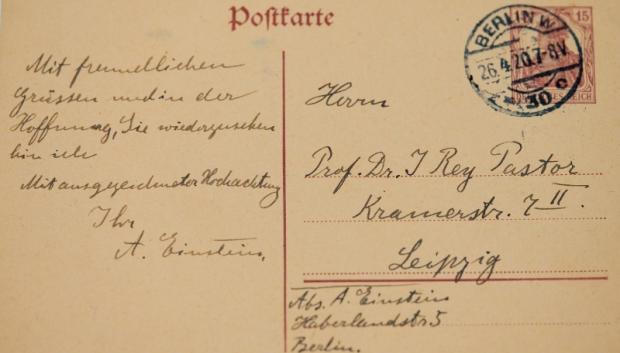 Postkarte
Mit freundlichen
Grüssen und in der
Hoffnung, Sie wiederzusehen
bin ich
Mit ausgezeichneter Hochachtung
Ihr
A. Einstein.
BERLIN W
26.4.20.7-8V.
30 c
15
REICH
Herrn
Prof. Dr. J Rey Pastor
Kramerstr. 7 II.
Leipzig
Abs. A. Einstein
Haberlandstr 5
Berlin.